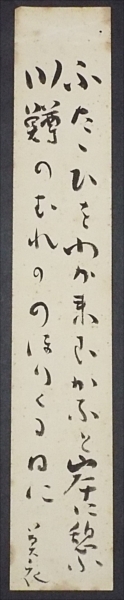 ふたゝひをわか来しかなと岸に憩ふ
川鱒のむれののほりくる日に